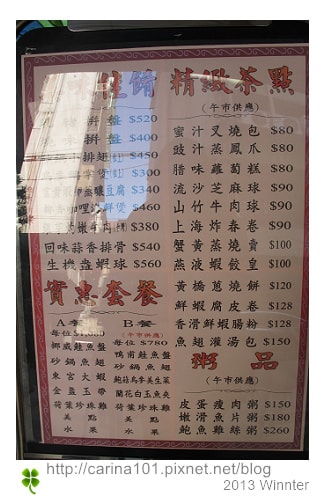 佳餚
拼盤 $520
拼盤 $400
排翅 $450
$300
釀豆腐 $340
咖哩 煲 $460
嫩牛肉 $380
回味蒜香排骨 $540
生機盎蝦球 $560
實惠套餐
A餐
每位$1080
挪威鮭魚盤
砂鍋魚翅
東宮火蝦
金盞玉帶
荷葉珍珠雞
美點
水果
B餐
(午市供應)
每位$780
鴨甫鮭魚盤
砂鍋魚翅
鮑菇烏參美生菜
蘭花白玉魚夾
荷葉珍珠雞
美點
水果
精緻茶點
(午市供應)
蜜汁叉燒包 $80
豉汁蒸鳳爪 $80
腊味蘿蔔糕 $80
流沙芝麻球 $90
山竹牛肉球 $90
上海炸春卷 $90
蟹黃蒸燒賣 $100
燕液蝦餃皇 $100
黃橋蔥燒餅 $120
鮮蝦腐皮卷 $128
香滑鮮蝦腸粉 $128
魚翅灌湯包 $150
粥品
(午市供應)
皮蛋瘦肉粥 $150
嫩滑魚片粥 $180
鮑魚雞絲粥 $260
http://carina101.pixnet.net/blog
2013 Winnter